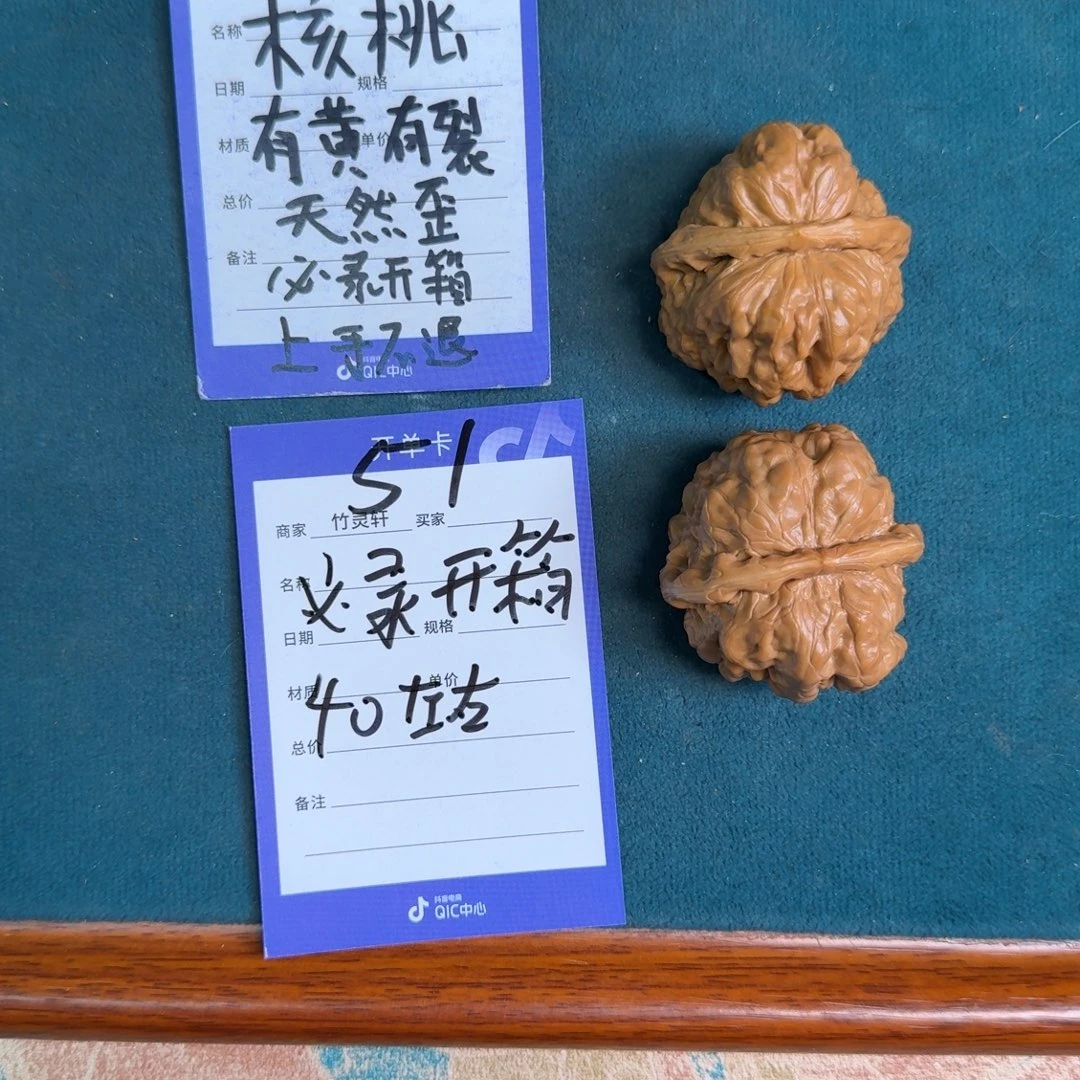 名称 核桃
日期 规格
有黄有裂
材质 单价
总价
天然歪
备注
必录开箱
上手不退
抖音电商
QIC中心
开单卡
51
商家 竹灵轩 买家
名称
必录开箱
日期 规格
材质 单价
40左右
总价
备注
抖音电商
QIC中心